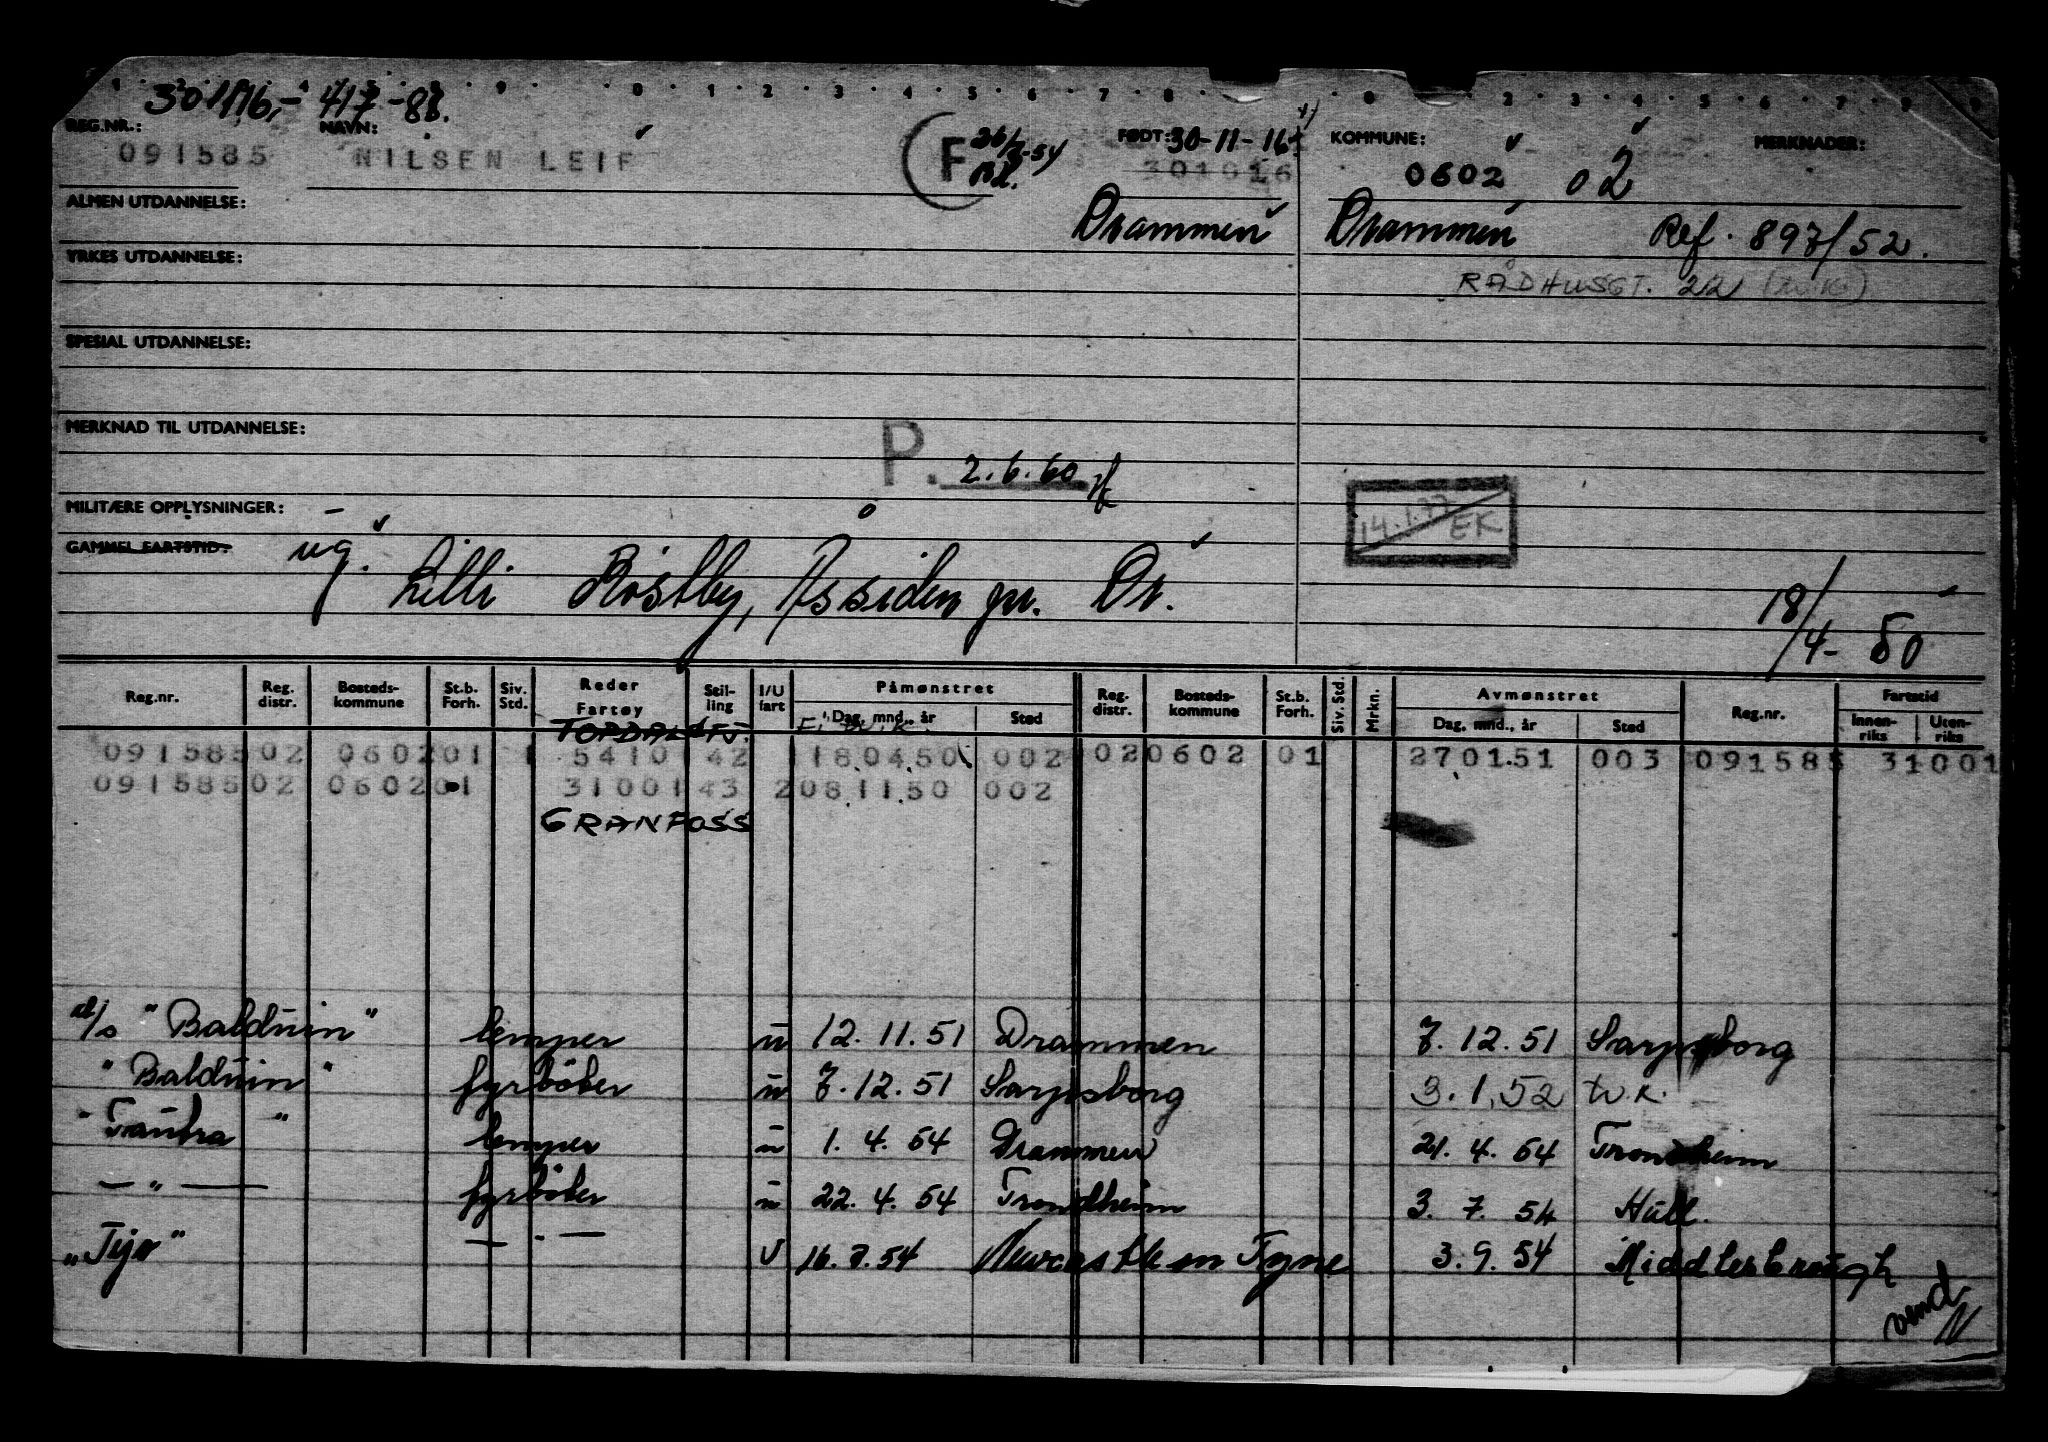 301116,- 417-88.
REG.NR.: NAVN: FØDT: 30-11-16 KOMMUNE: MERKNADER:
091585 NILSEN LEIF F 26/7-54 301016 0602 02
ALMEN UTDANNELSE: Drammen Drammen Ref. 897/52.
YRKES UTDANNELSE: RÅDHUSGT. 22 (W.K)
SPESIAL UTDANNELSE:
MERKNAD TIL UTDANNELSE: P. 2.6.60
MILITÆRE OPPLYSNINGER: — 14.1.77 EK
GAMMEL FARTSTID: ug. Lilli Röstby, Åssiden pr. Dr. 18/4-50
Reg.nr. Reg. distr. Bosteds-kommune St.b. Forh. Siv. Std. Reder Fartøy Stil-ling I/U fart Påmønstret Dag, mnd., år Sted Reg. distr. Bosteds-kommune St.b. Forh. Siv. Std. Mrkn. Avmønstret Dag, mnd., år Sted Reg.nr. Fartstid Innen-riks Uten-riks
TOPDALSFJ.
091585 02 0602 01 1 5410 42 1 180450 002 02 0602 01 270151 003 091585 31001
091585 02 0602 01 31001 43 2 081150 002
GRANFOSS
d/s "Balduin" lemper u 12.11.51 Drammen 7.12.51 Sarpsborg
"Balduin" fyrböter u 7.12.51 Sarpsborg 3.1.52 W.K.
"Tautra" lemper u 1.4.54 Drammen 21.4.54 Trondheim
— " — fyrböter u 22.4.54 Trondheim 3.7.54 Hull.
"Tejo" — " — U 16.7.54 Newcastle on Tyne 3.9.54 Middlesbrough
vend